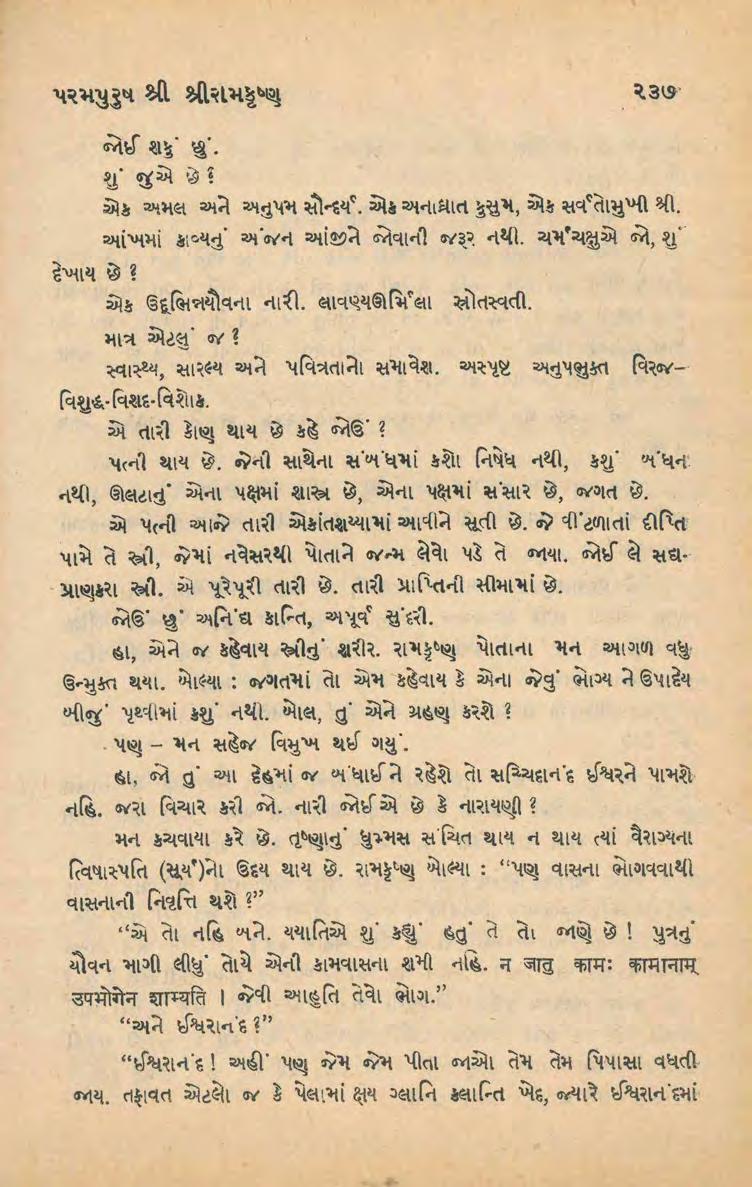 પરમપુરુષ શ્રી શ્રીરામકૃષ્ણ ૨૩૭
જોઈ શકું છું.
શું જુએ છે ?
એક અમલ અને અનુપમ સૌન્દર્ય. એક અનાઘ્રાત કુસુમ, એક સર્વતોમુખી શ્રી.
આંખમાં કાવ્યનું અંજન આંજીને જોવાની જરૂર નથી. ચર્મચક્ષુએ જો, શું
દેખાય છે ?
એક ઉદ્દભિન્નયૌવના નારી. લાવણ્યઊર્મિલા સ્રોતસ્વતી.
માત્ર એટલું જ ?
સ્વાસ્થ્ય, સારલ્ય અને પવિત્રતાનો સમાવેશ. અસ્પૃષ્ટ અનુપભુક્ત વિરજ–
વિશુદ્ધ-વિશદ-વિશોક.
એ તારી કોણ થાય છે કહે જોઉં ?
પત્ની થાય છે. જેની સાથેના સંબંધમાં કશો નિષેધ નથી, કશું બંધન
નથી, ઊલટાનું એના પક્ષમાં શાસ્ત્ર છે, એના પક્ષમાં સંસાર છે, જગત છે.
એ પત્ની આજે તારી એકાંતશય્યામાં આવીને સૂતી છે. જે વીંટળાતાં દીપ્તિ
પામે તે સ્ત્રી, જેમાં નવેસરથી પોતાને જન્મ લેવો પડે તે જાયા. જોઈ લે સદ્ય-
પ્રાણકરા સ્ત્રી. એ પૂરેપૂરી તારી છે. તારી પ્રાપ્તિની સીમામાં છે.
જોઉં છું અનિંદ્ય કાન્તિ, અપૂર્વ સુંદરી.
હા, એને જ કહેવાય સ્ત્રીનું શરીર. રામકૃષ્ણ પોતાના મન આગળ વધુ
ઉન્મુક્ત થયા. બોલ્યા : જગતમાં તો એમ કહેવાય કે એના જેવું ભોગ્ય ને ઉપાદેય
બીજું પૃથ્વીમાં કશું નથી. બોલ, તું એને ગ્રહણ કરશે ?
પણ – મન સહેજ વિમુખ થઈ ગયું.
હા, જો તું આ દેહમાં જ બંધાઈને રહેશે તો સચ્ચિદાનંદ ઈશ્વરને પામશે
નહિ. જરા વિચાર કરી જો. નારી જોઈએ છે કે નારાયણી ?
મન કચવાયા કરે છે. તૃષ્ણાનું ધુમ્મસ સંચિત થાય ન થાય ત્યાં વૈરાગ્યના
ત્વિષાસ્પતિ (સૂર્ય)નો ઉદય થાય છે. રામકૃષ્ણ બોલ્યા : “પણ વાસના ભોગવવાથી
વાસનાની નિવૃત્તિ થશે ?”
“એ તો નહિ બને. યયાતિએ શું કહ્યું હતું તે તો જાણે છે ! પુત્રનું
યૌવન માગી લીધું તોયે એની કામવાસના શમી નહિ. न जातु कामः कामानाम्
उपभोगेन शाम्यति । જેવી આહુતિ તેવો ભોગ.”
“અને ઈશ્વરાનંદ ?”
“ઈશ્વરાનંદ ! અહીં પણ જેમ જેમ પીતા જાઓ તેમ તેમ પિપાસા વધતી
જાય. તફાવત એટલો જ કે પેલામાં ક્ષય ગ્લાનિ ક્લાન્તિ ખેદ, જ્યારે ઈશ્વરાનંદમાં